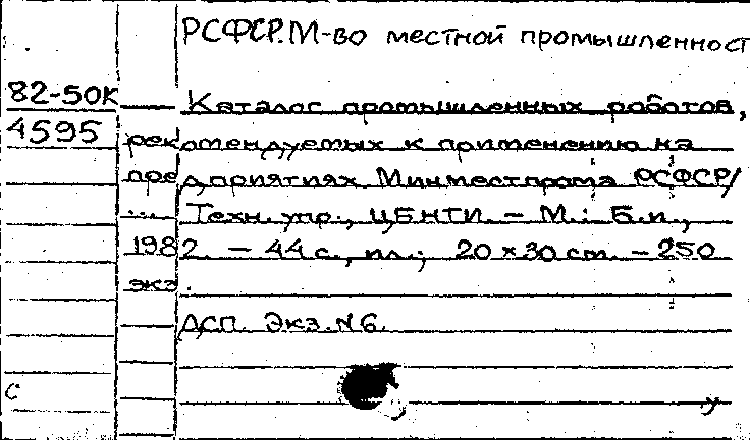 РСФСР. М-во местной промышленност
82-50К
4595
Каталог промышленных роботов,
рекомендуемых к применению на
предприятиях Минместпрома РСФСР/
... Техн. упр., ЦБНТИ. – М.: Б.и.,
1982. – 44 с., ил.; 20×30 см. – 250
экз.
ДСП. Экз. №6.
С
У